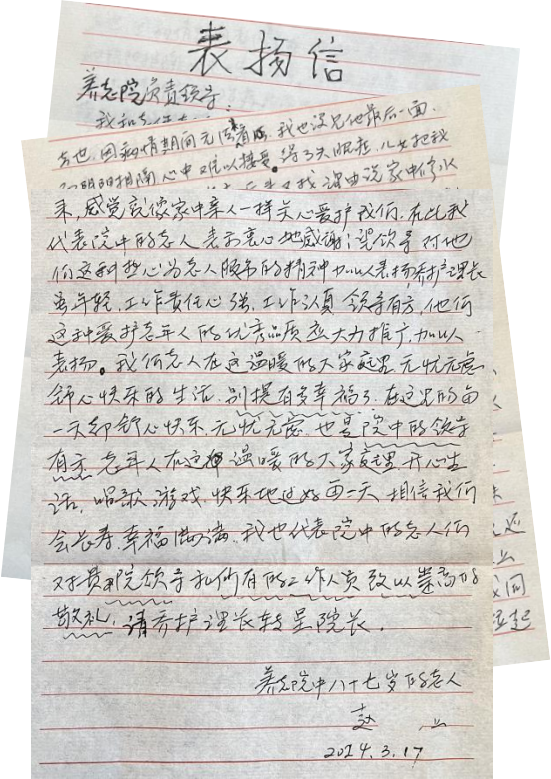 表扬信
养老院负责领导：
去世，因病情期间无法看院，我也没见他最后一面，
心中难以接受。
来，感觉就像家中亲人一样关心爱护我们，在此我
代表院中的老人表示衷心地感谢；望领导对他
们这种热心为老人服务的精神加以表扬养护课长
虽年轻，工作责任心强，工作认真领导有方，他们
这种爱护老年人的优秀品质应大力推广，加以
表扬。我们老人在这温暖的大家庭里无忧无虑
舒心快乐的生活，别提有多幸福了，在这里的每
一天都舒心快乐，无忧无虑，也是院中的领导
有方，老年人在这种温暖的大家庭里开心生
活，唱歌游戏，快乐地过好每一天相信我们
会长寿幸福满满，我也代表院中的老人们
对贵院领导和所有的工作人员致以崇高的
敬礼，请养护课长转呈院长。
养老院中八十七岁的老人
赵
2024.3.17